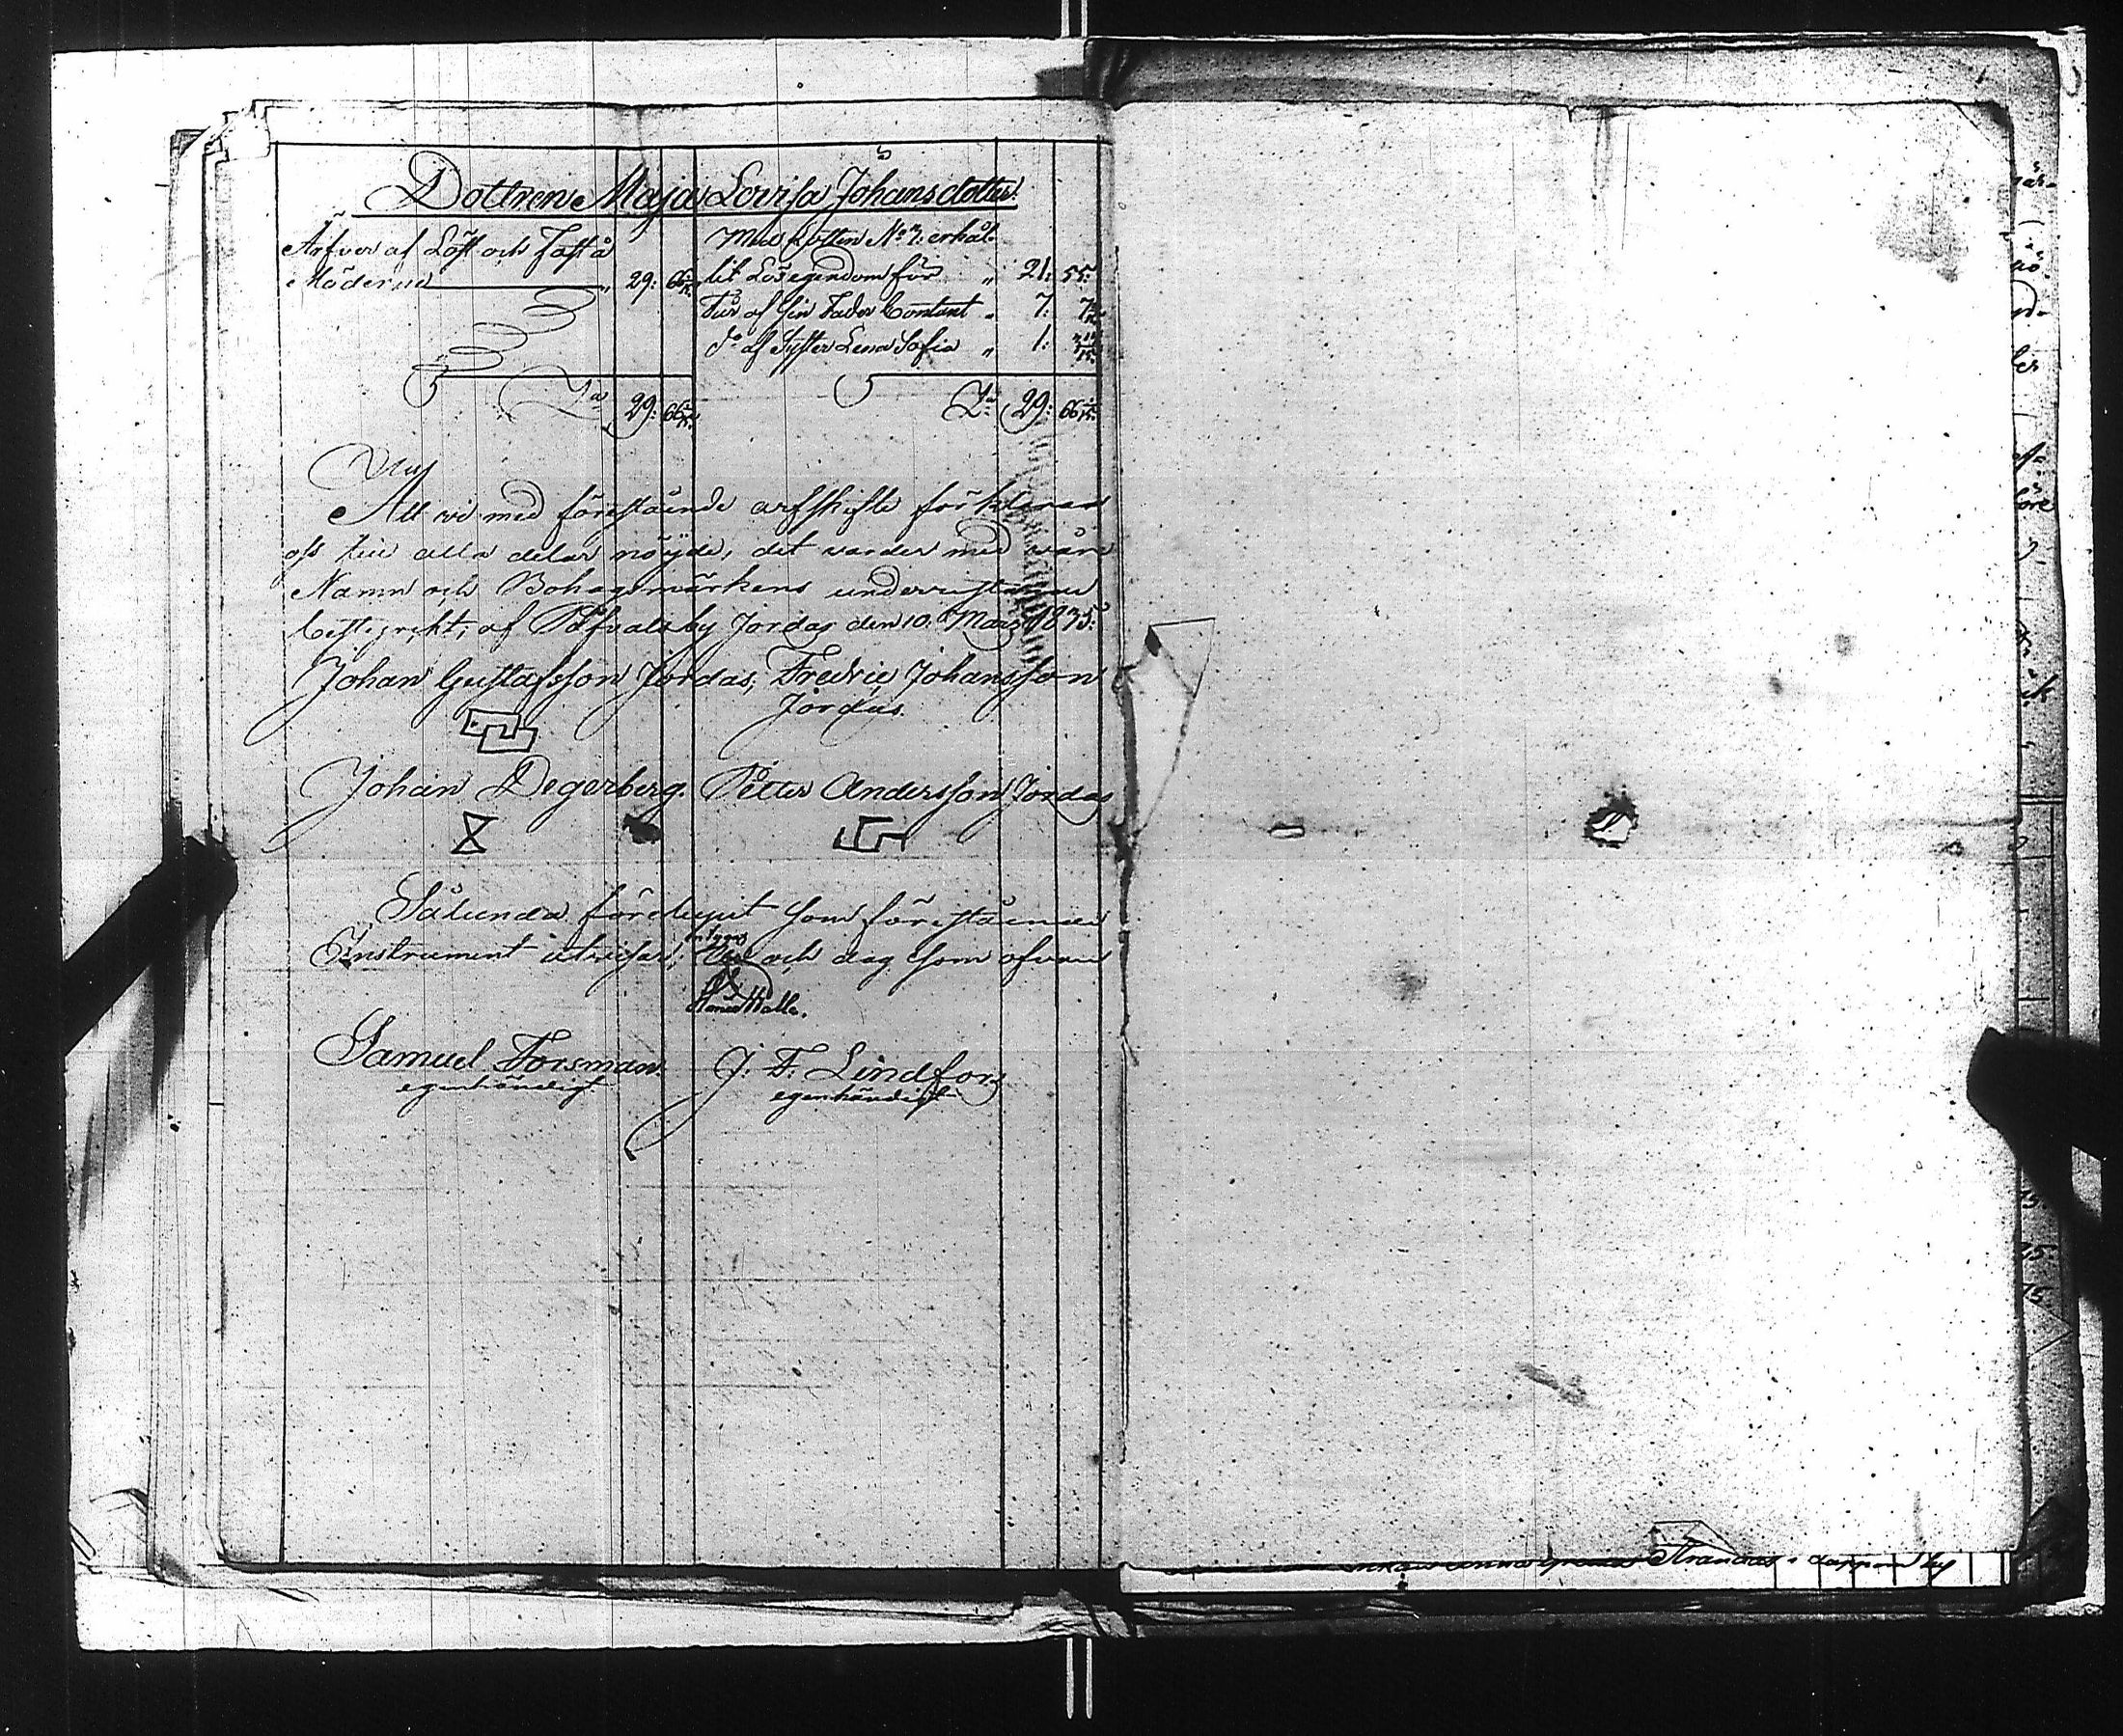 Dottren Maja Lovisa Johansdotter.
Ärfver af Löst och Fast å
Möderne " 29: 66
Med Lotten No 7. erhål-
lit Lösegendom för " 21: 55
Får af sin Fader Contant " 7:
do af Syster Lena Sofia " 1:
Sa 29: 66
Sa 29: 66
Att vi med förestående arfskifte förklarar
oss till alla delar nöjde, det varder med våra
Namn och Bohagsmärkens undersättande
bekräftat, af Påfvalsby Jordas den 10. Mars 1875:
Johan Gustafsson Jordas, Fredric Johansson
Jordas.
Johan Degerberg. Petter Andersson Jordas
Sålunda förelupit som förestående
Instrument utvisar, intyga År och dag som ofvan
Samuel Forsman. J: F: Lindfors
egenhändigt egenhändigt